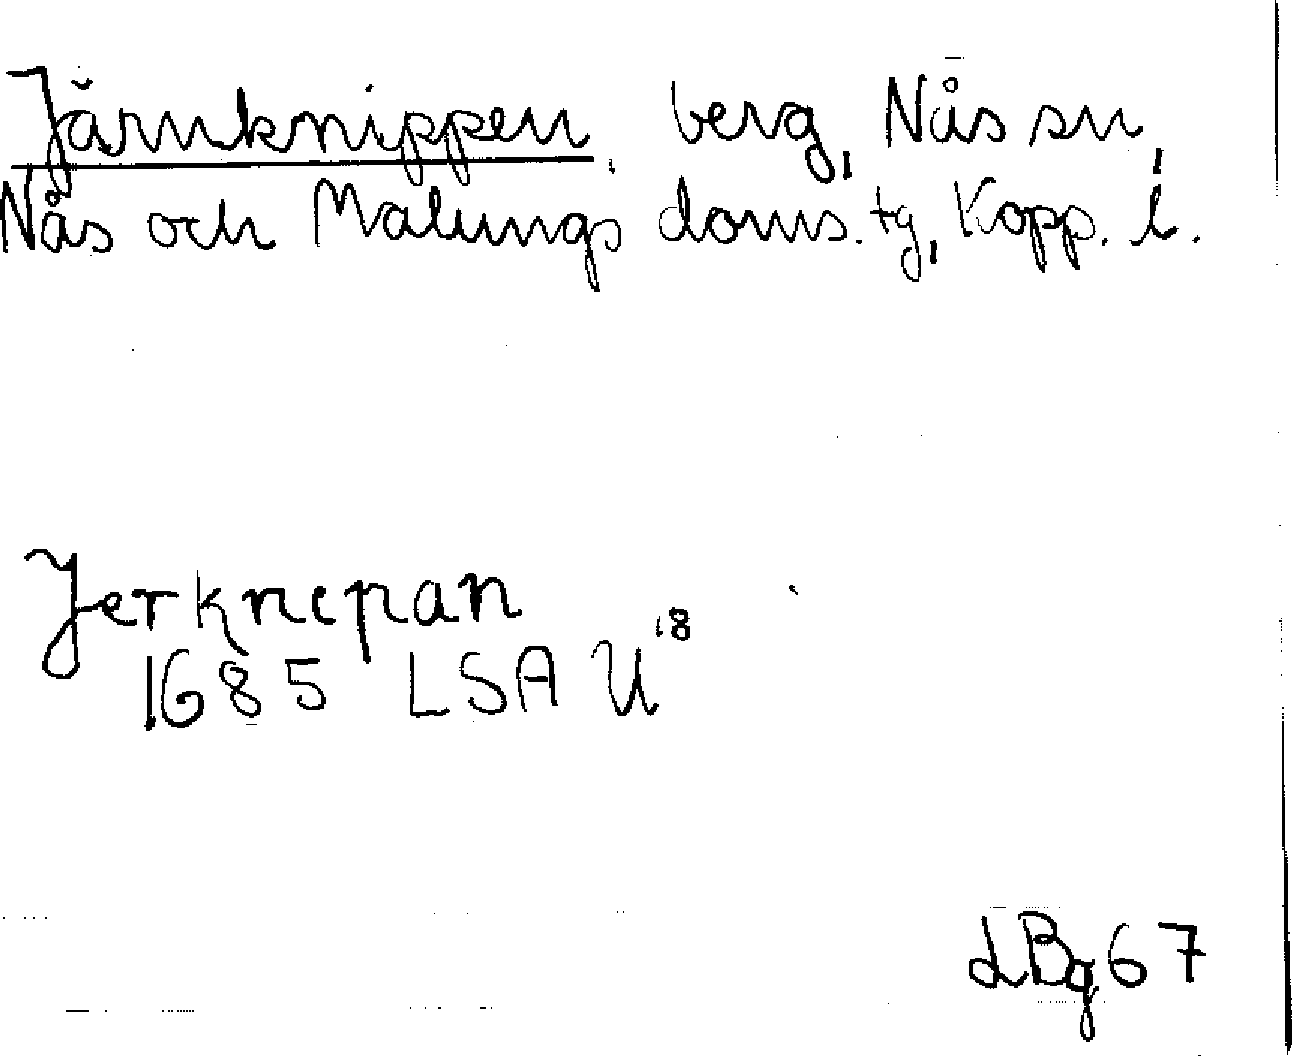 Järnknippen, berg, Nås sn,
Nås och Malungs doms. tg, Kopp. l.
Jerknepan
1685 LSA U¹⁸
LBg 67